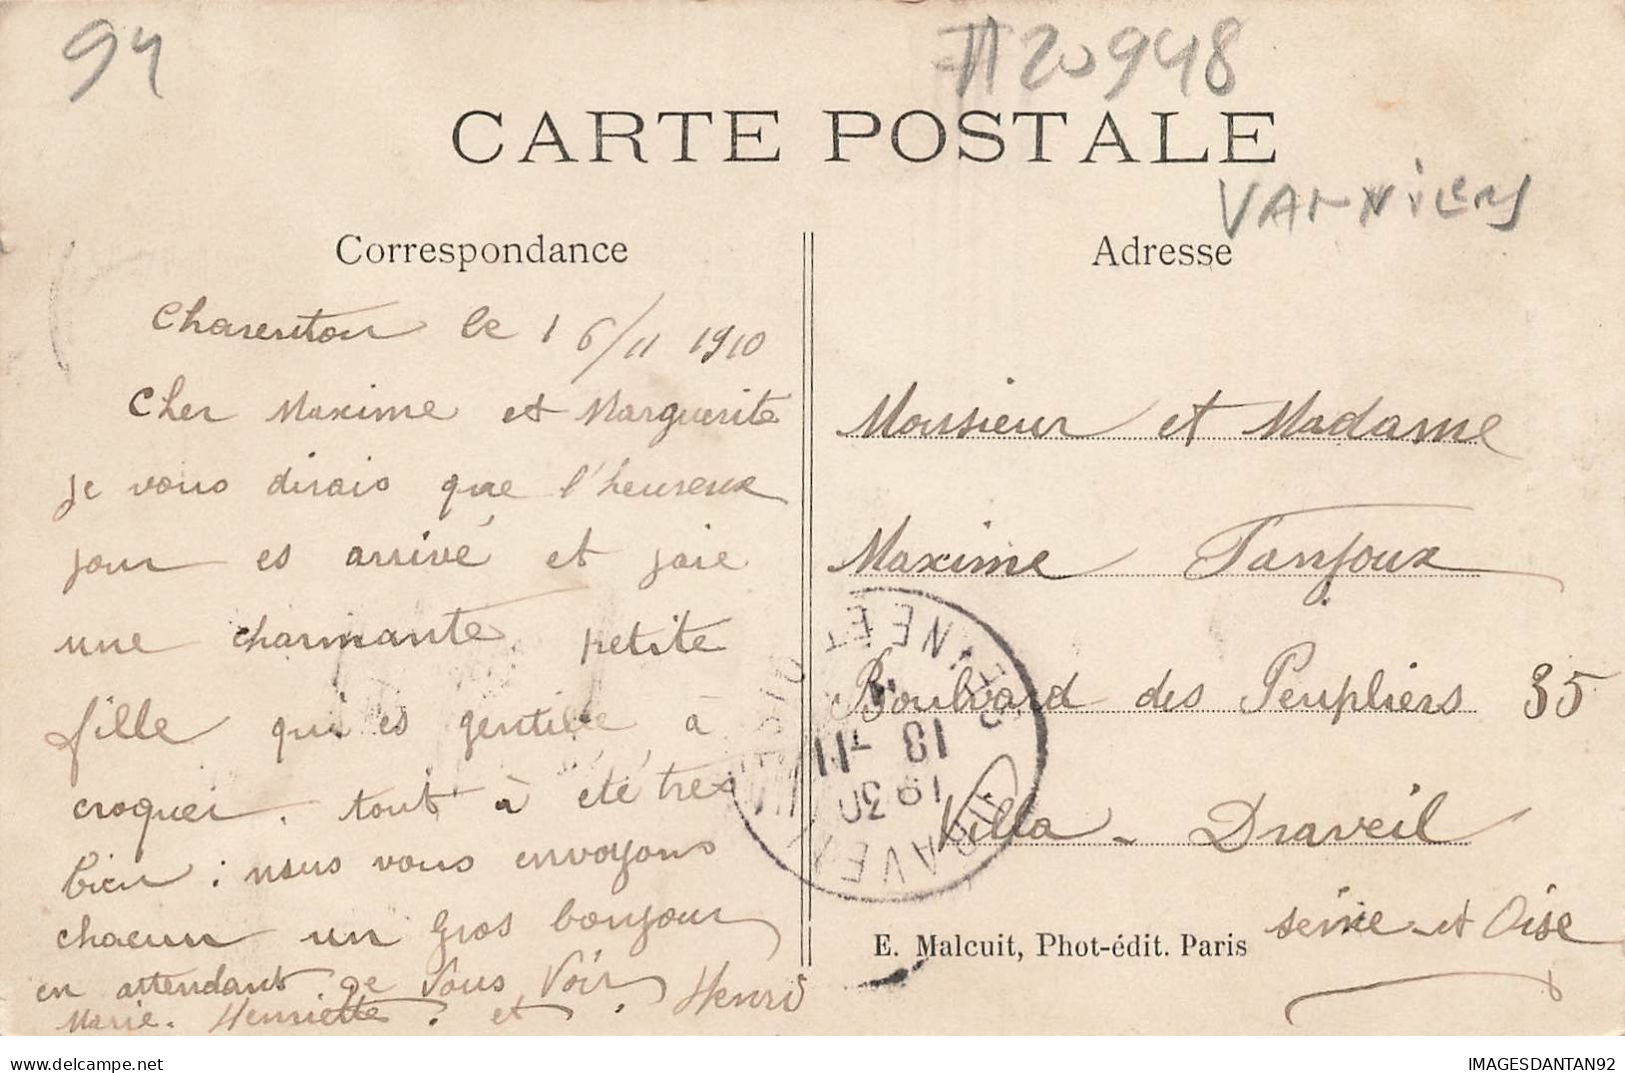 94
#20948
CARTE POSTALE
Correspondance
Charenton le 16/11 1910
Cher Maxime et Marguerite
je vous dirais que l'heureux
jour es arrivé et jaie
une charmante petite
fille qui es gentille à
croquer. tout à été tres
bien : nous vous envoyons
chacun un Gros bonjour
en attendant ge Vous Voir
Marie. Henriette. et. Henri
Adresse
Monsieur et Madame
Maxime Tanfoux
Boulvard des Peupliers 35
Villa - Draveil
seine et Oise
18 -11
E. Malcuit, Phot-édit. Paris
IMAGESDANTAN92